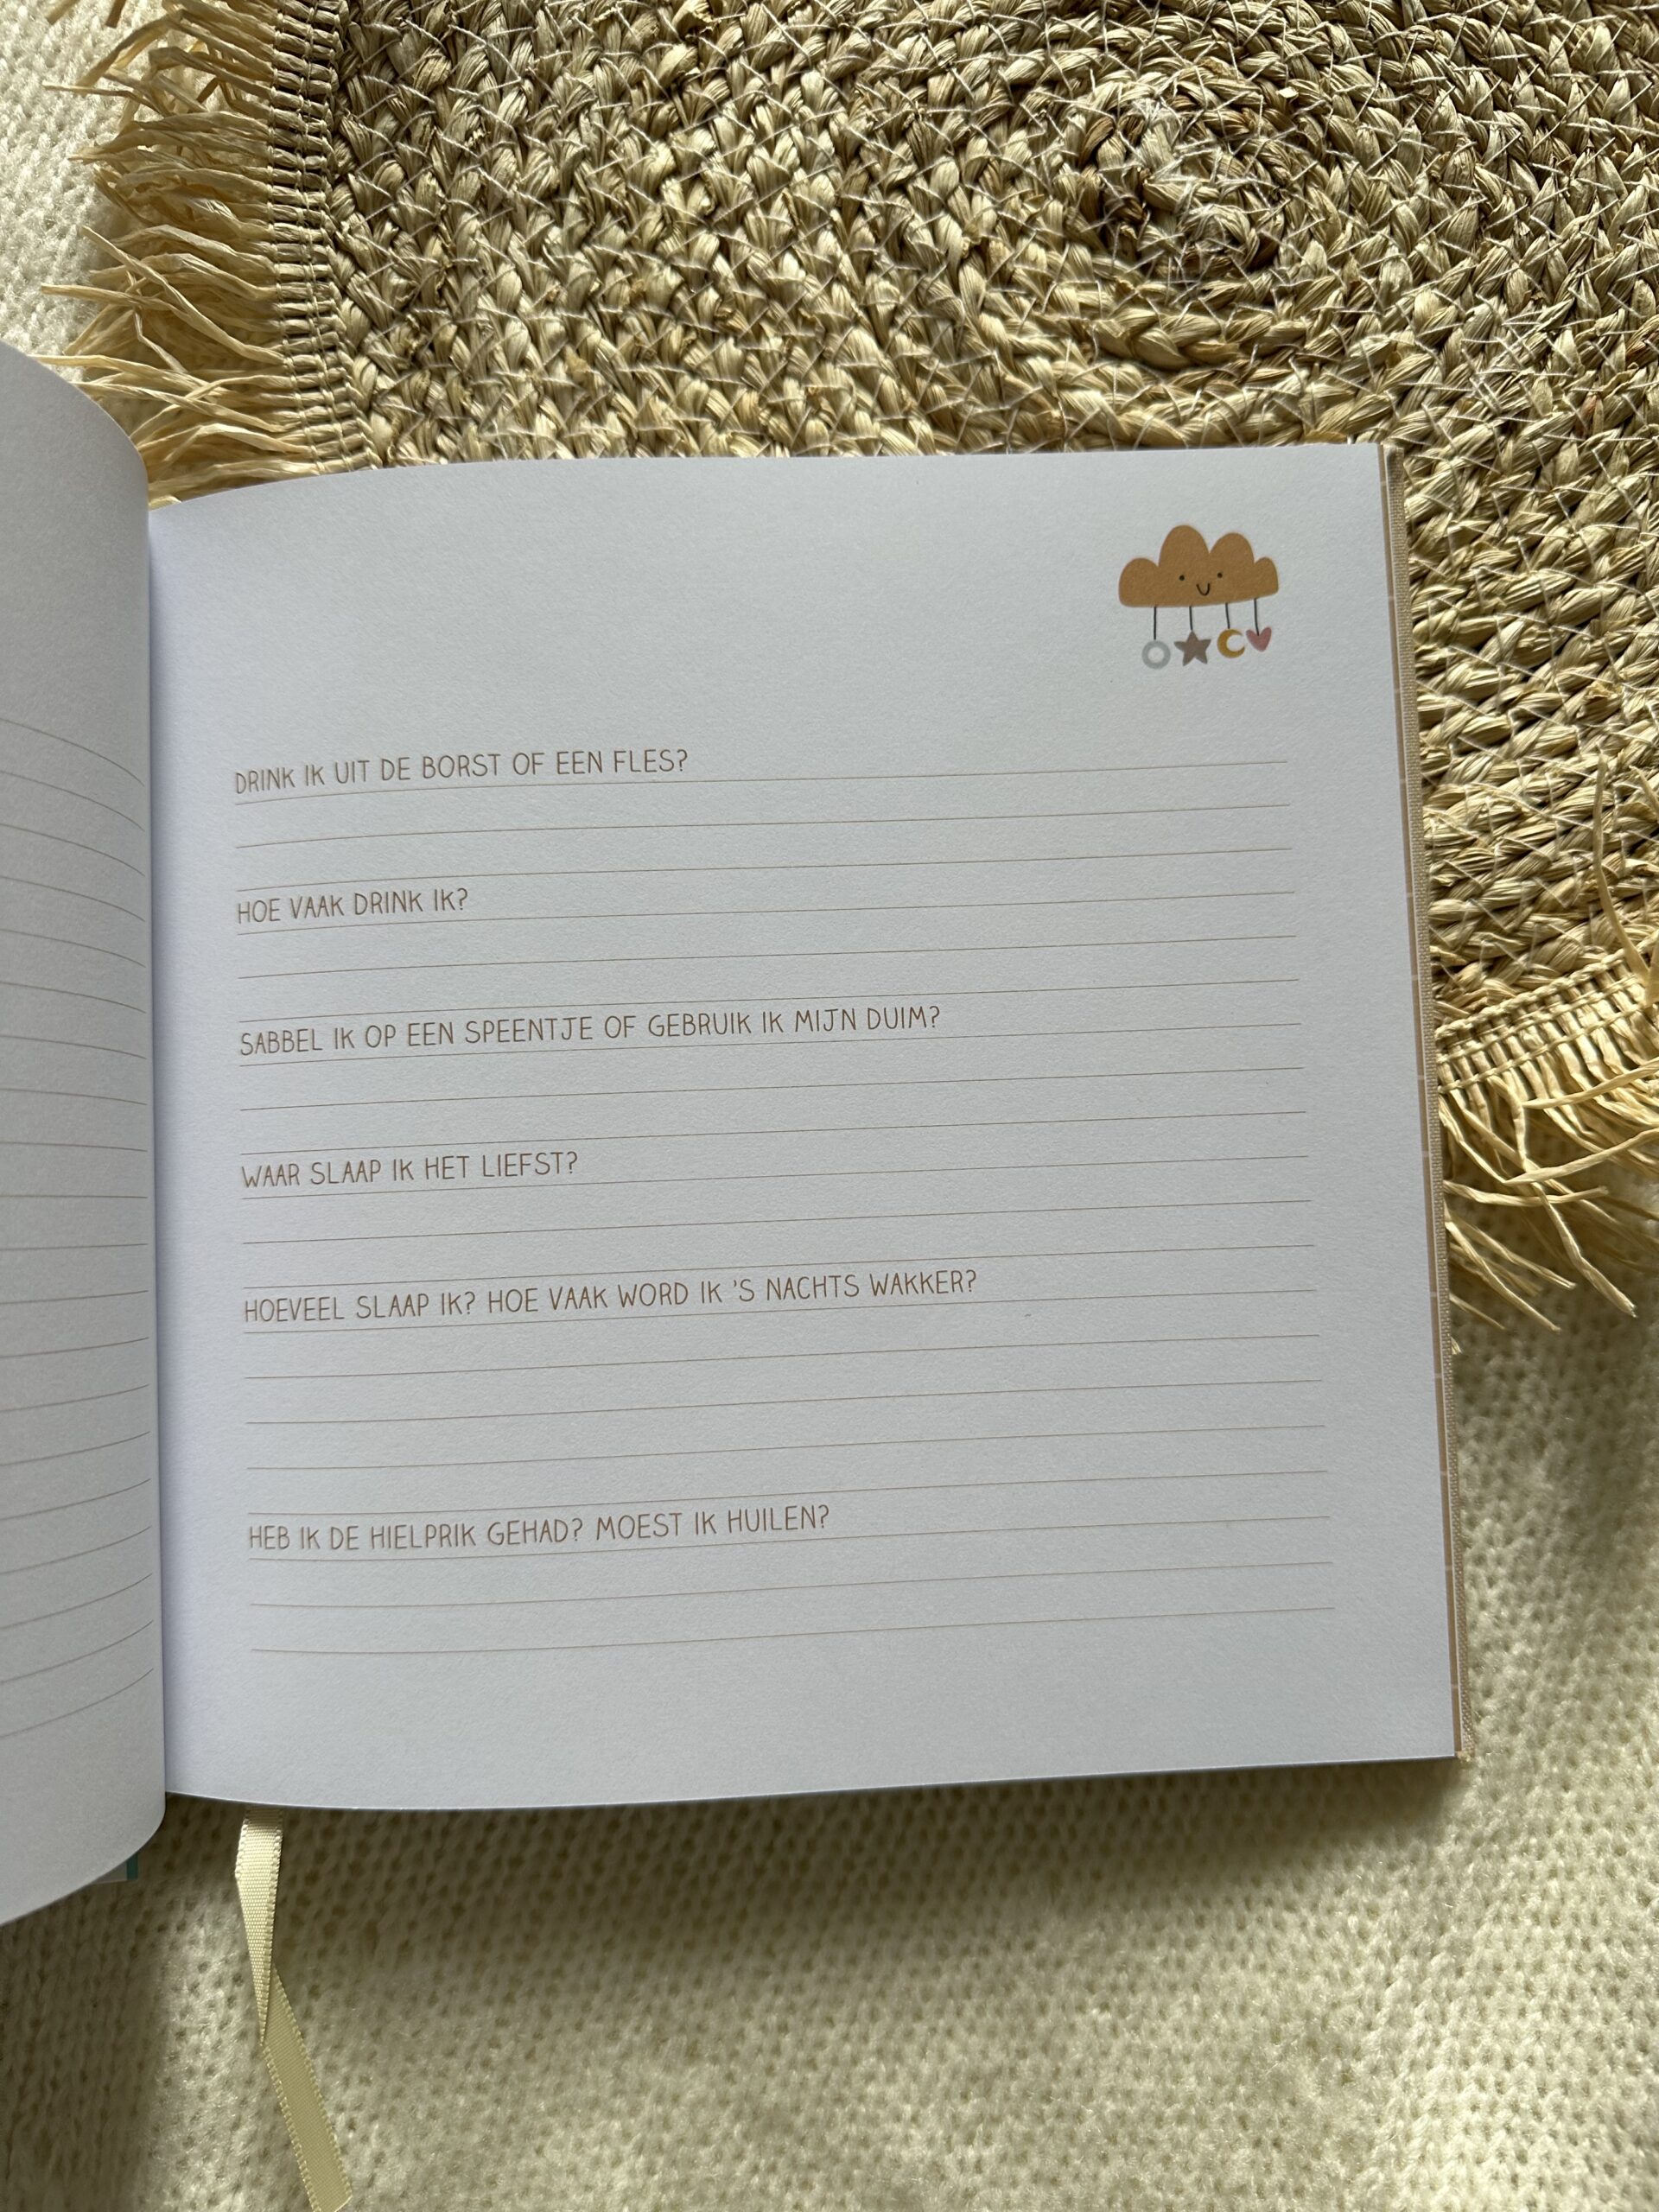 DRINK IK UIT DE BORST OF EEN FLES?
HOE VAAK DRINK IK?
SABBEL IK OP EEN SPEENTJE OF GEBRUIK IK MIJN DUIM?
WAAR SLAAP IK HET LIEFST?
HOEVEEL SLAAP IK? HOE VAAK WORD IK 'S NACHTS WAKKER?
HEB IK DE HIELPRIK GEHAD? MOEST IK HUILEN?